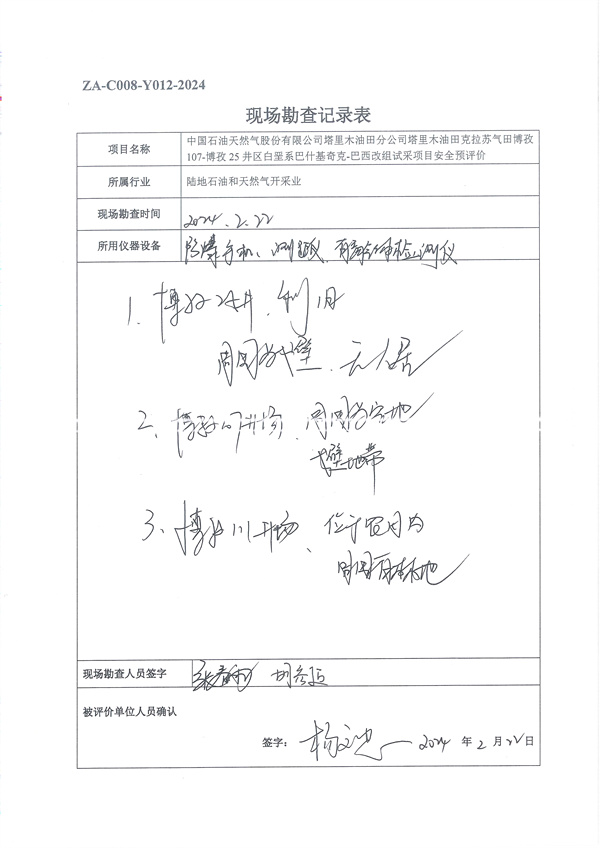 ZA-C008-Y012-2024
现场勘查记录表
项目名称
中国石油天然气股份有限公司塔里木油田分公司塔里木油田克拉苏气田博孜
107-博孜 25 井区白垩系巴什基奇克-巴西改组试采项目安全预评价
所属行业
陆地石油和天然气开采业
现场勘查时间
2024.2.22
所用仪器设备
防爆手机、测距仪、有毒气体检测仪
1、博孜 井、利旧
周围为戈壁、无人居
2、博孜 井场、周围为
戈壁地带
3、博孜 井场、位于
周围有林地
现场勘查人员签字
被评价单位人员确认
签字:
2024 年 2 月 22 日